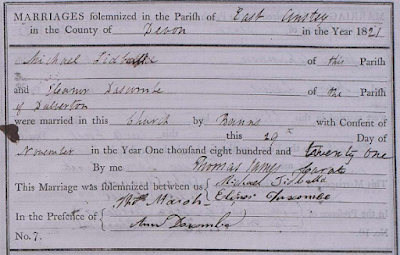 MARRIAGES solemnized in the Parish of East Anstey
in the County of Devon in the Year 1821
Michael Tidball of this Parish
and Eleanor Dascombe of the Parish
of Dulverton
were married in this Church by Banns with Consent of
this 29 Day of
November in the Year One thousand eight hundred and twenty one
By me Thomas James Curate
This Marriage was solemnized between us Michael Tidball
In the Presence of Thos Marsh
Ann Dascombe
No. 7.